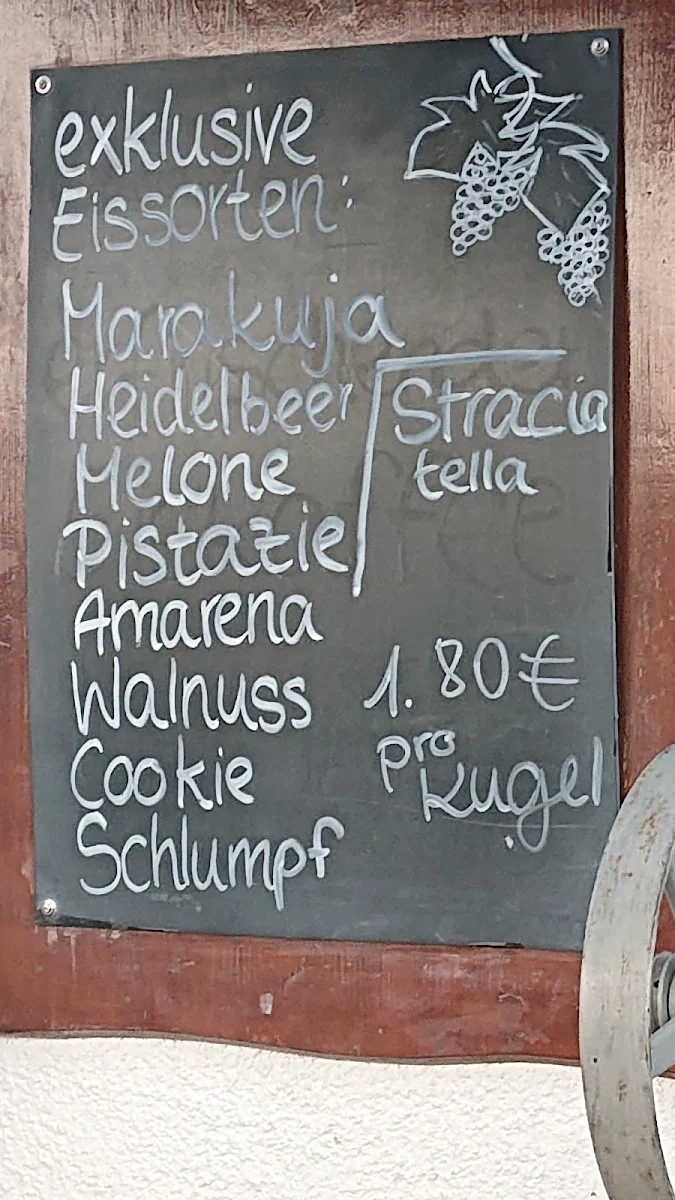 exklusive
Eissorten:
Marakuja
Heidelbeer
Melone
Pistazie
Amarena
Walnuss
Cookie
Schlumpf
Stracia
tella
1.80€
pro
Kugel